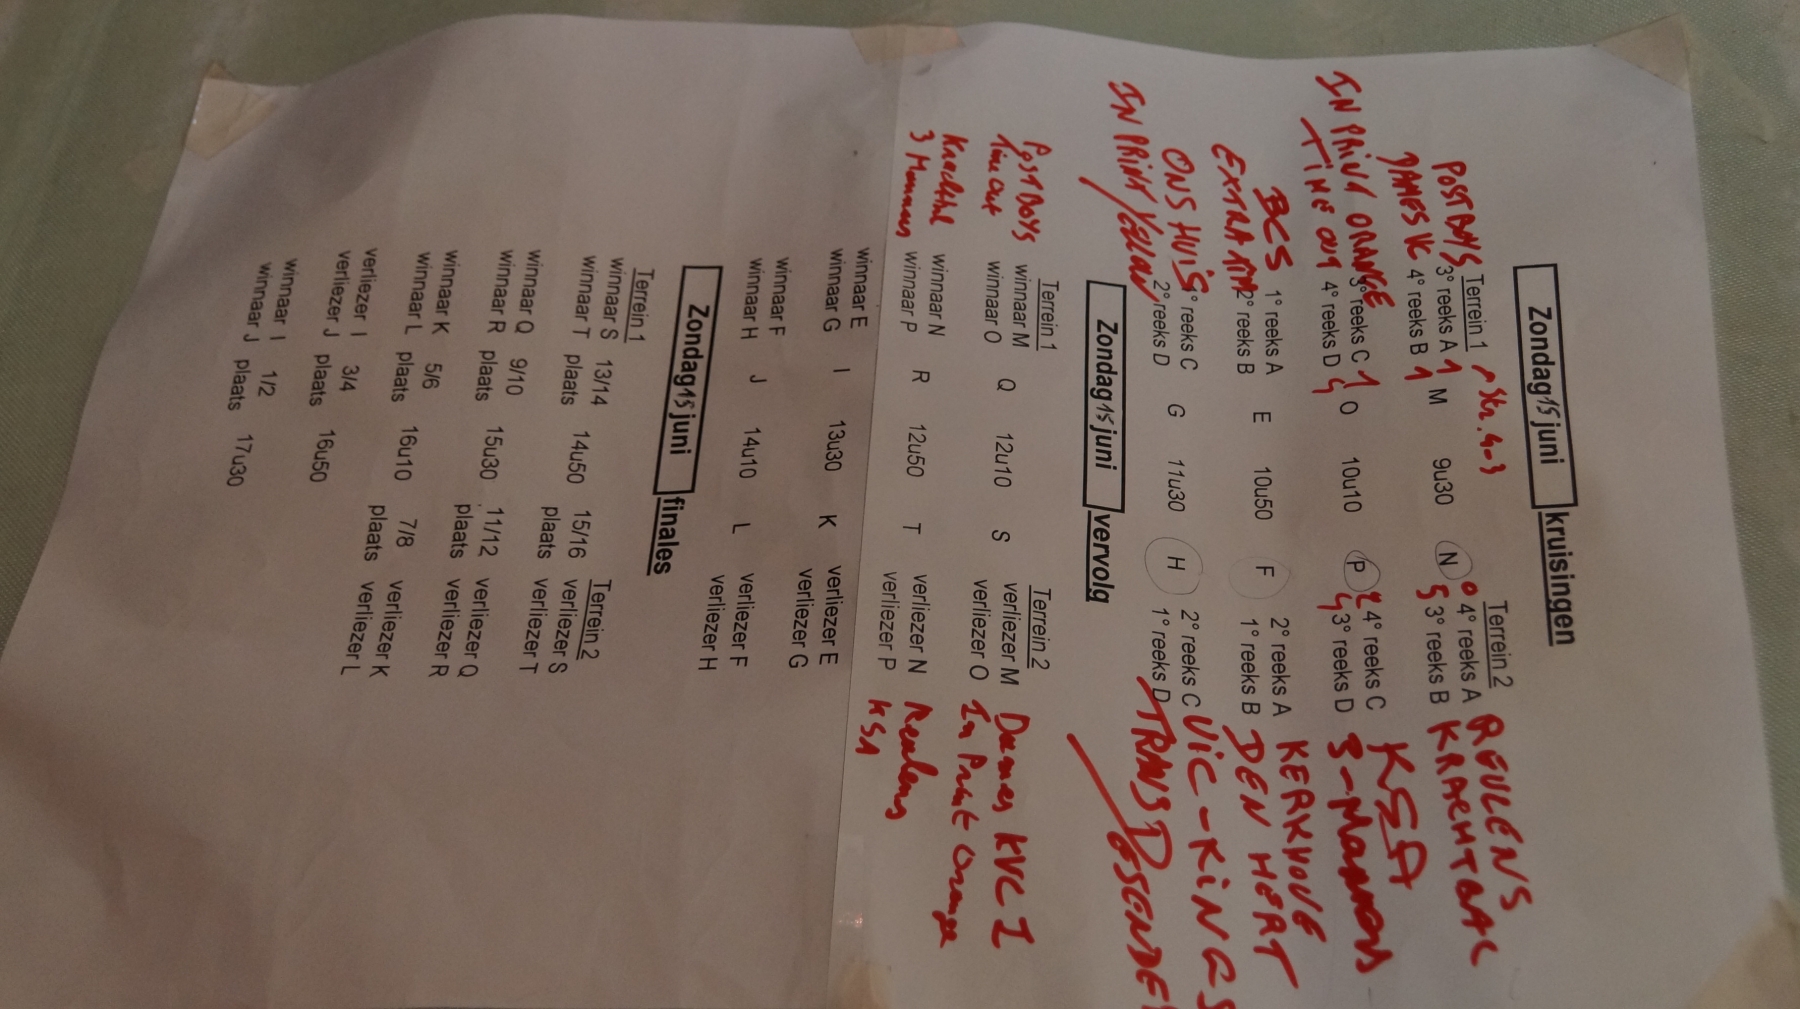 Zondag 15 juni kruisingen
Terrein 1 Terrein 2
POSTBOYS 3° reeks A 1 M 9u30 N 0 4° reeks A REULENS
DAMES K 4° reeks B 1 5 3° reeks B KRACHTBAL
IN PRINT ORANGE 3° reeks C 1 O 10u10 P 2 4° reeks C KSA
TIME OUT 4° reeks D 4 4 3° reeks D 3-MANNEN
BCS 1° reeks A E 10u50 F 2° reeks A KERKHOVE
EXTRA TIM 2° reeks B 1° reeks B DEN HERT
ONS HUIS 1° reeks C G 11u30 H 2° reeks C VIC-KINGS
IN PRINT YELLOW 2° reeks D 1° reeks D TRANS
Zondag 15 juni vervolg
Terrein 1 Terrein 2
Post Boys winnaar M Q 12u10 S verliezer M Dames KVC I
Time out winnaar O verliezer O In Print Orange
winnaar N R 12u50 T verliezer N Reulens
3 Mannen winnaar P verliezer P KSA
winnaar E I 13u30 K verliezer E
winnaar G verliezer G
winnaar F J 14u10 L verliezer F
winnaar H verliezer H
Zondag 15 juni finales
Terrein 1 Terrein 2
winnaar S 13/14 14u50 15/16 verliezer S
winnaar T plaats plaats verliezer T
winnaar Q 9/10 15u30 11/12 verliezer Q
winnaar R plaats plaats verliezer R
winnaar K 5/6 16u10 7/8 verliezer K
winnaar L plaats plaats verliezer L
verliezer I 3/4 16u50
verliezer J plaats
winnaar I 1/2 17u30
winnaar J plaats